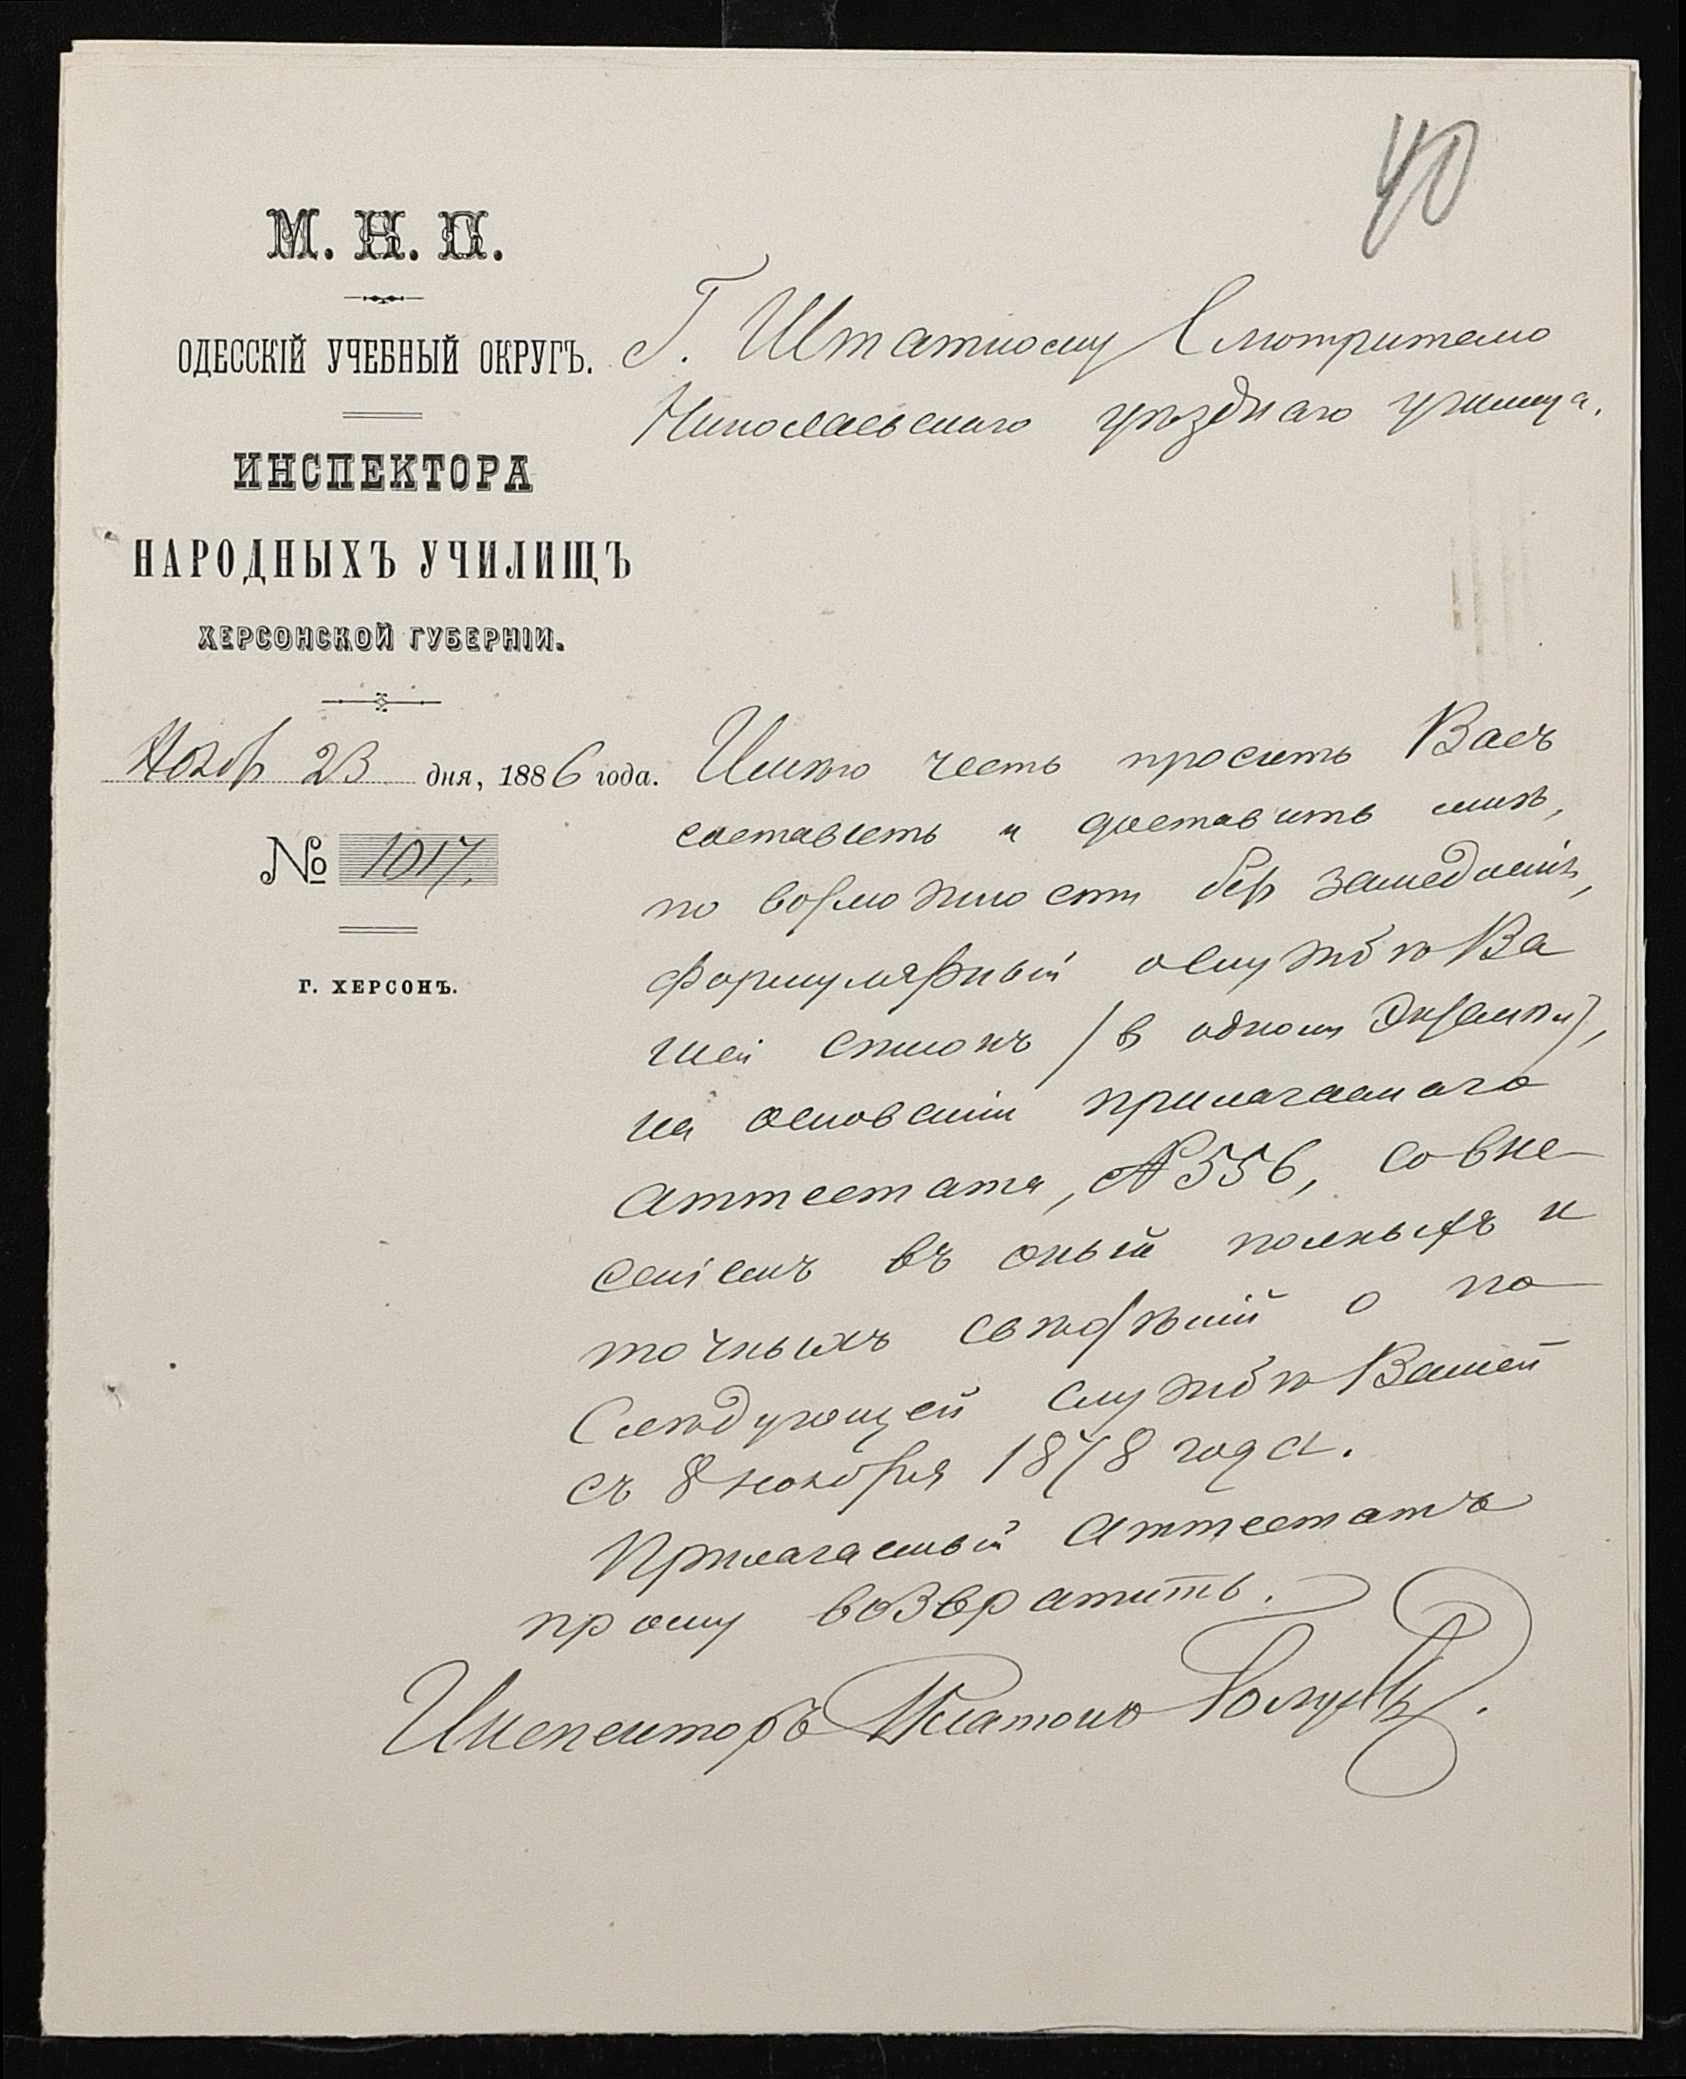 40
М. Н. П.
ОДЕССКІЙ УЧЕБНЫЙ ОКРУГЪ.
ИНСПЕКТОРА
НАРОДНЫХЪ УЧИЛИЩЪ
ХЕРСОНСКОЙ ГУБЕРНІИ.
Нояб 23 дня, 1886 года.
№ 1017.
Г. ХЕРСОНЪ.
Г. Штатному Смотрителю
Николаевскаго уѣзднаго училища.
Имѣю честь просить Васъ
составить и доставить мнѣ,
по возможности без замедленія,
формулярный о службѣ Ва
шей списокъ (в одном экземпл),
на основаніи прилагаемаго
аттестата, № 556, со вне
сеніемъ въ оный полныхъ и
точныхъ свѣдѣній о по
слѣдующей службѣ Вашей
съ 8 ноября 1878 года.
Прилагаемый аттестатъ
прошу возвратить.
Инспекторъ Платонъ